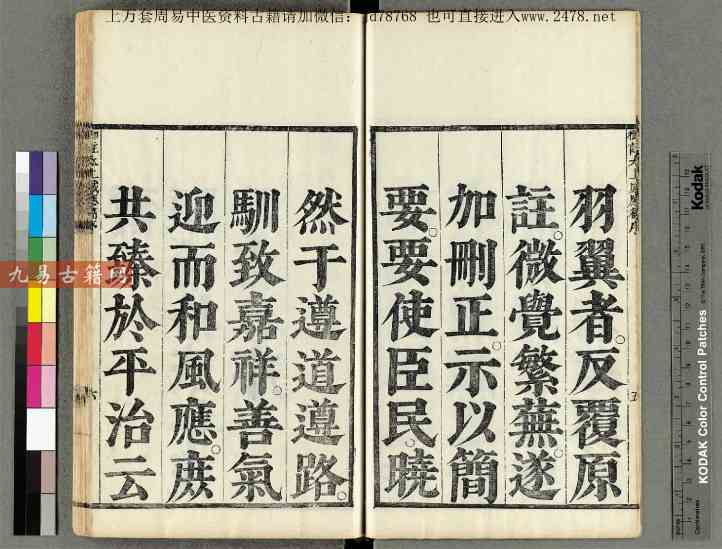 上万套周易中医资料古籍请加微信:
d78768 也可直接进入www.2478.net
羽翼者。反覆原
註。微覺繁蕪。遂
加刪正。示以簡
要。要使臣民。曉
然于遵道遵路。
馴致嘉祥。善氣
迎而和風應。庶
共臻於平治云
五
六
九易古籍网
Kodak
KODAK Color Control Patches